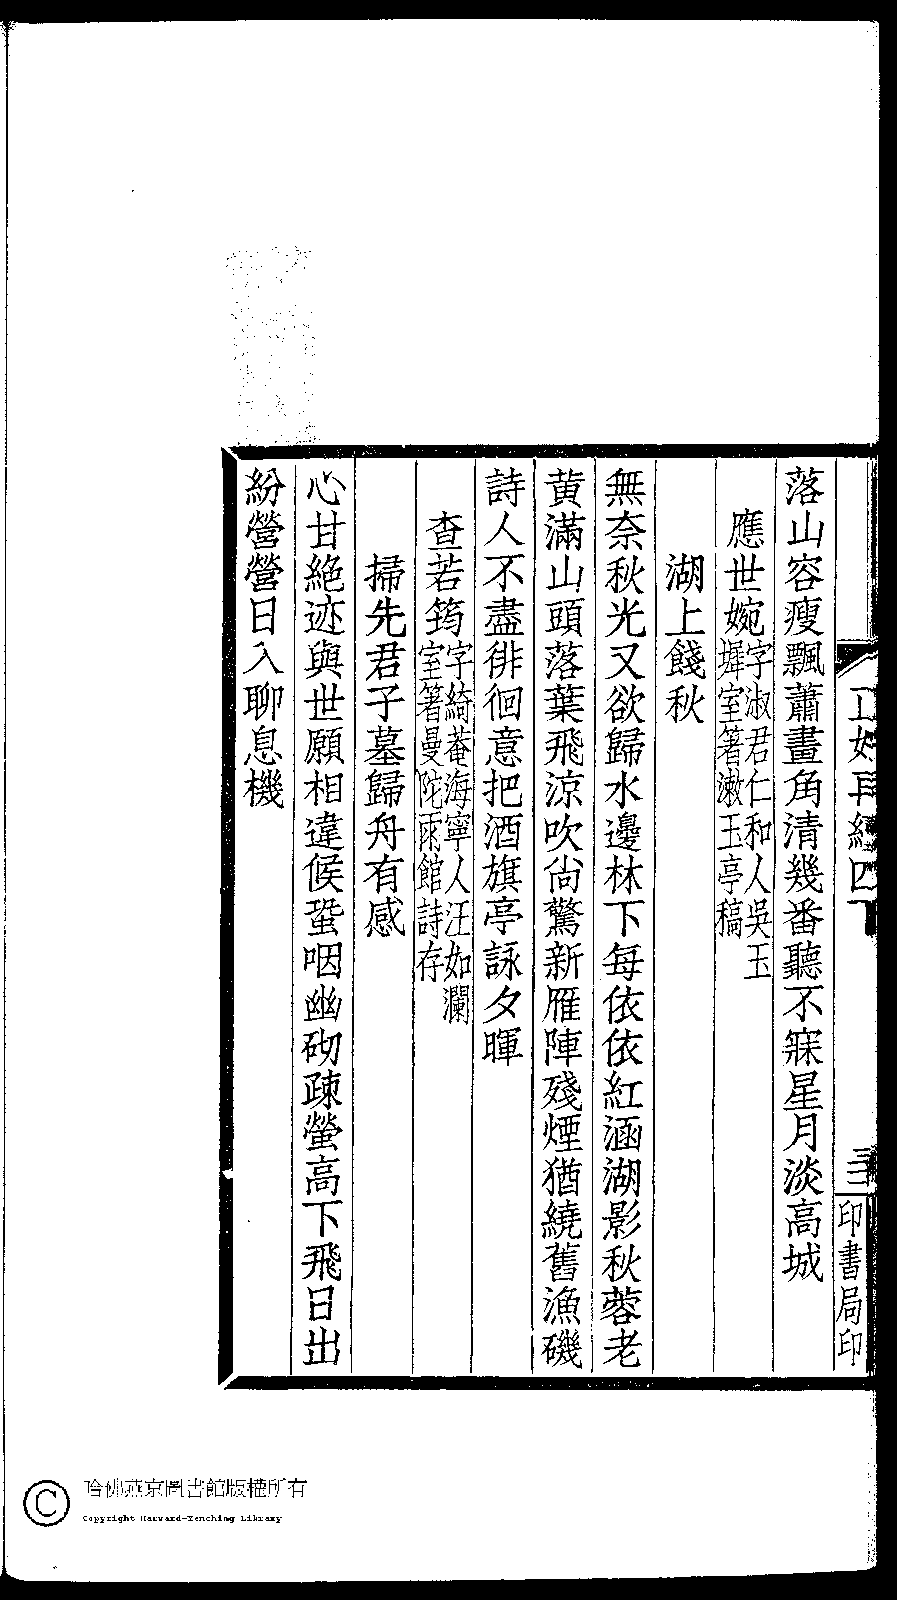 落山容瘦飄蕭畫角清幾番聽不寐星月淡高城
應世婉字淑君仁和人吳玉
墀室箸漱玉亭稿
湖上餞秋
無奈秋光又欲歸水邊林下每依依紅涵湖影秋蓉老
黃滿山頭落葉飛涼吹尙驚新雁陣殘煙猶繞舊漁磯
詩人不盡徘徊意把酒旗亭詠夕暉
查若筠字綺菴海寧人汪如瀾
室箸曼陀雨館詩存
掃先君子墓歸舟有感
心甘絶迹與世願相違候蛩咽幽砌疎螢高下飛日出
紛營營日入聊息機
四下
三
印書局印
哈佛燕京圖書館版權所有
Copyright Harvard-Yenching Library